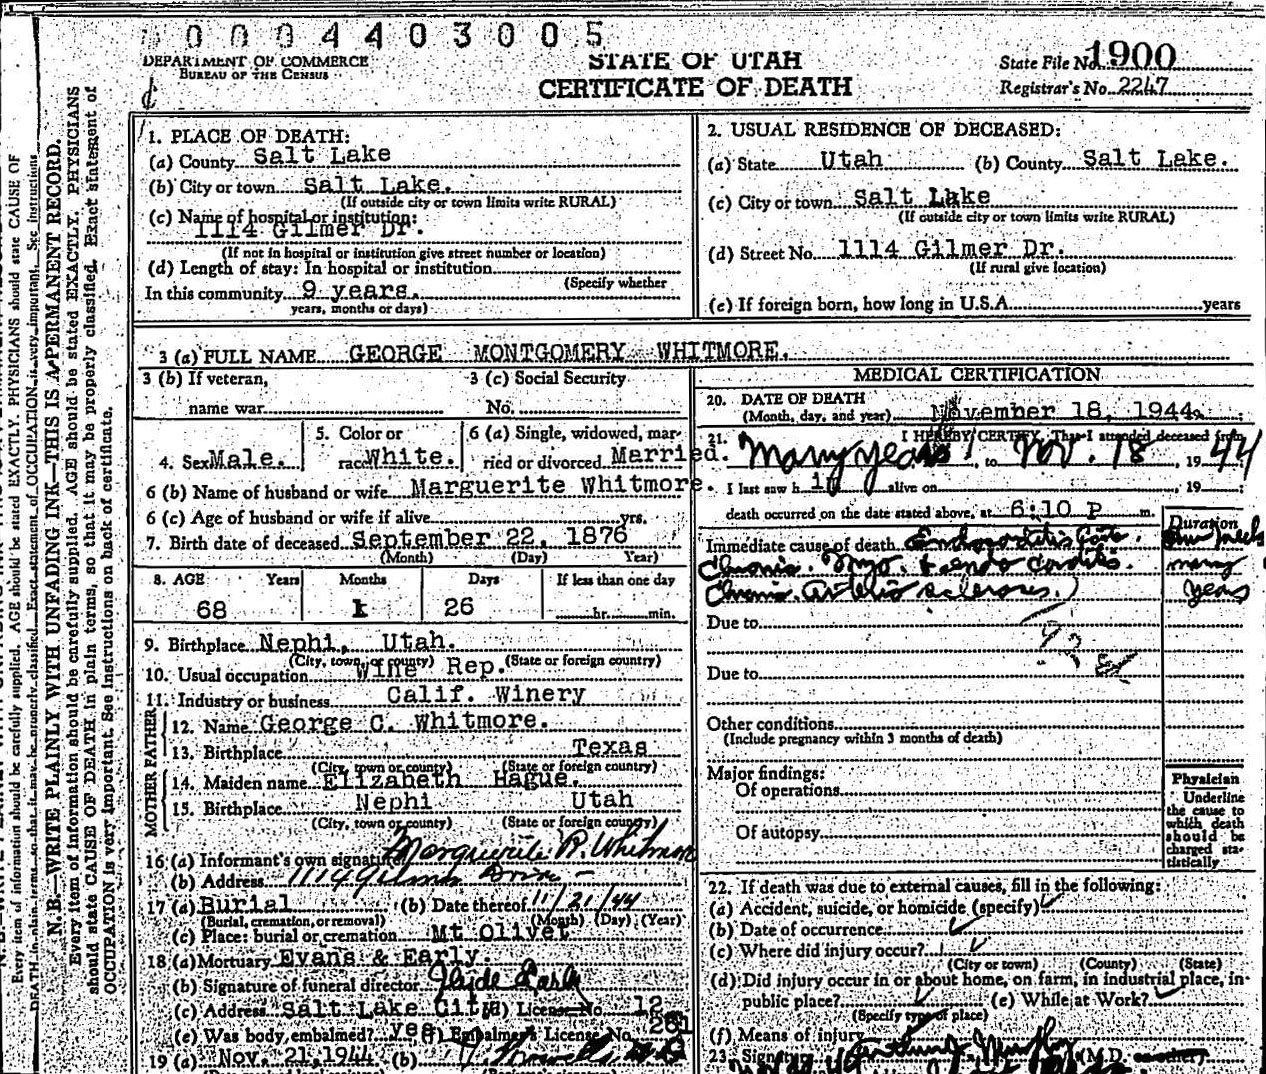 0 0 0 4 4 0 3 0 0 5
DEPARTMENT OF COMMERCE
BUREAU OF THE CENSUS
STATE OF UTAH
CERTIFICATE OF DEATH
State File No. 1900
Registrar's No. 2247
N. B.—WRITE PLAINLY WITH UNFADING INK—THIS IS A PERMANENT RECORD.
Every item of information should be carefully supplied. AGE should be stated EXACTLY. PHYSICIANS
should state CAUSE OF DEATH in plain terms, so that it may be properly classified. Exact statement of
OCCUPATION is very important. See instructions on back of certificate.
1. PLACE OF DEATH:
(a) County Salt Lake
(b) City or town Salt Lake.
(If outside city or town limits write RURAL)
(c) Name of hospital or institution:
1114 Gilmer Dr.
(If not in hospital or institution give street number or location)
(d) Length of stay: In hospital or institution
(Specify whether
In this community 9 years.
years, months or days)
2. USUAL RESIDENCE OF DECEASED:
(a) State Utah (b) County Salt Lake.
(c) City or town Salt Lake
(If outside city or town limits write RURAL)
(d) Street No. 1114 Gilmer Dr.
(If rural give location)
(e) If foreign born, how long in U.S.A. years
3 (a) FULL NAME GEORGE MONTGOMERY WHITMORE.
3 (b) If veteran,
name war
3 (c) Social Security
No.
4. Sex Male.
5. Color or
race White.
6 (a) Single, widowed, mar-
ried or divorced Married.
6 (b) Name of husband or wife Marguerite Whitmore.
6 (c) Age of husband or wife if alive yrs.
7. Birth date of deceased September 22, 1876
(Month) (Day) Year)
8. AGE Years Months Days If less than one day
68 1 26 hr. min.
9. Birthplace Nephi, Utah.
(City, town, or county) (State or foreign country)
10. Usual occupation Wine Rep.
11. Industry or business Calif. Winery
FATHER
12. Name George C. Whitmore.
13. Birthplace Texas
(City, town or county) (State or foreign country)
MOTHER
14. Maiden name Elizabeth Hague.
15. Birthplace Nephi Utah
(City, town or county) (State or foreign country)
16 (a) Informant's own signature Marguerite R. Whitmore
(b) Address 1114 Gilmer Drive
17 (a) Burial (b) Date thereof 11/21/44
(Burial, cremation, or removal) (Month) (Day) (Year)
(c) Place: burial or cremation Mt Olivet
18 (a) Mortuary Evans & Early.
(b) Signature of funeral director Early
(c) Address Salt Lake City (d) License No. 12
(e) Was body embalmed? yes (f) Embalmer's License No. 261
19 (a) Nov. 21, 1944 (b)
MEDICAL CERTIFICATION
20. DATE OF DEATH
(Month, day, and year) November 18, 1944.
21. I HEREBY CERTIFY, That I attended deceased from
Many years, to Nov. 18 1944
I last saw h alive on 19
death occurred on the date stated above, at 6:10 P m.
Duration
Immediate cause of death
Chronic Myo. & endo carditis. many
Chronic arterio sclerosis.) years
Due to
Due to
Other conditions
(Include pregnancy within 3 months of death)
Major findings:
Of operations
Of autopsy
Physician
Underline
the cause to
which death
should be
charged sta-
tistically
22. If death was due to external causes, fill in the following:
(a) Accident, suicide, or homicide (specify)
(b) Date of occurrence
(c) Where did injury occur?
(City or town) (County) (State)
(d) Did injury occur in or about home, on farm, in industrial place, in
public place? (e) While at Work?
(Specify type of place)
(f) Means of injury
23. Signature (M.D. or other)